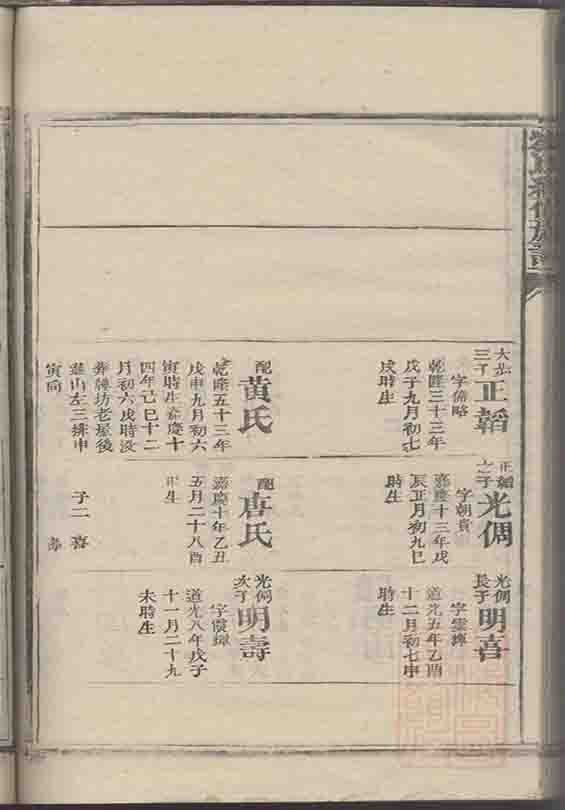 大步
三子
正韜
字備略
乾隆三十三年
戊子九月初七
戌時生
配
黄氏
乾隆五十三年
戊申九月初六
寅時生嘉慶十
四年己巳十二
月初六戌時没
葬牌坊老屋後
韮山左三排申
寅向
正韜
之子
光倜
字朝貴
嘉慶十三年戊
辰正月初九巳
時生
配
唐氏
嘉慶十年乙丑
五月二十八酉
正生
子二 喜
壽
光倜
長子
明喜
字雲輝
道光五年乙酉
十二月初七申
時生
光倜
次子
明壽
字霞輝
道光八年戊子
十一月二十九
未時生